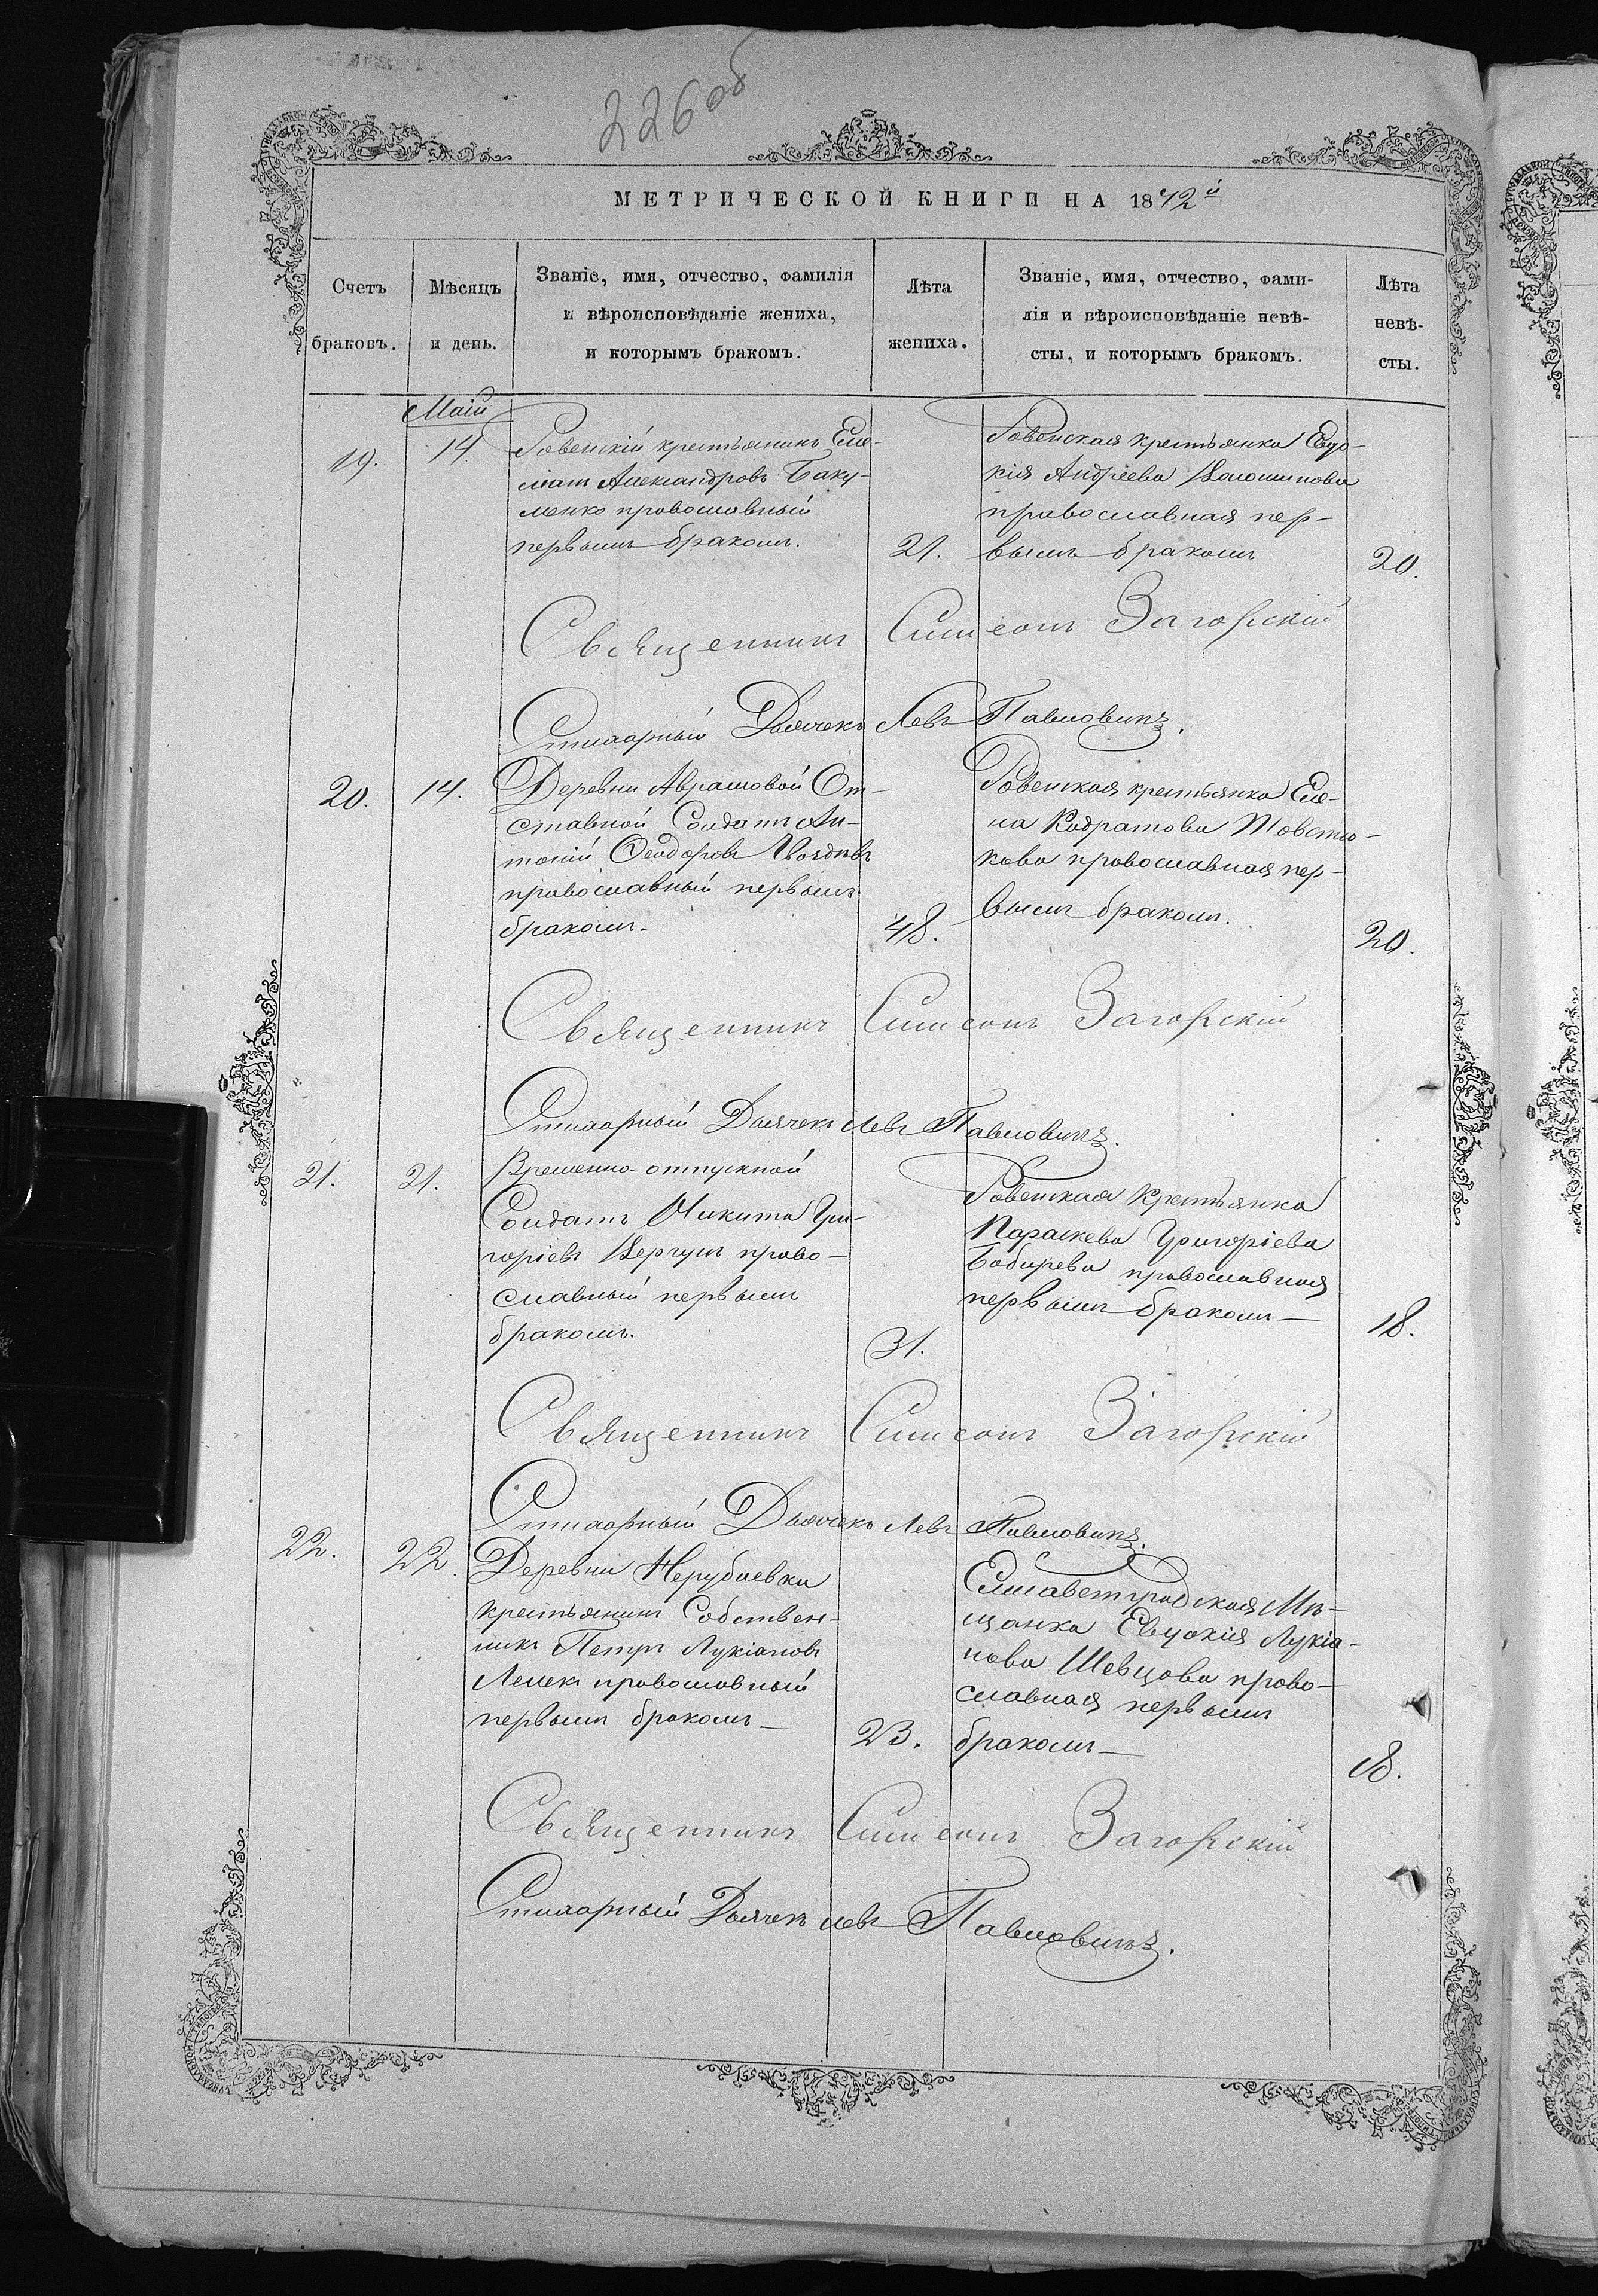 226 об
МЕТРИЧЕСКОЙ КНИГИ НА 1872й
Счетъ
браковъ.
Мѣсяцъ
и день.
Званіе, имя, отчество, фамилія
и вѣроисповѣданіе жениха,
и которымъ бракомъ.
Лѣта
жениха.
Званіе, имя, отчество, фами-
лія и вѣроисповѣданіе невѣ-
сты, и которымъ бракомъ.
Лѣта
невѣ-
сты.
Маій
19.
14.
Ровенскій крестьянинъ
Александровъ Баку-
менко православный
первымъ бракомъ.
21.
Ровенская крестьянка Евдо-
кія Андреева Волошинова
православная пер-
вымъ бракомъ
20.
Священникъ Симеонъ Загорскій
Стихарный Дьячекъ Левъ Павловичъ.
20.
14.
Деревни Аврамовой От-
ставной Солдатъ Ан-
тоній Феодоровъ Гвоздевъ
православный первымъ
бракомъ.
48.
Ровенская крестьянка Еле-
на Кодратова Товстю-
кова православная пер-
вымъ бракомъ.
20.
Священникъ Симеонъ Загорскій
Стихарный Дьячекъ Левъ Павловичъ.
21.
21.
Временно-отпускной
Солдатъ Никита Гри-
горіевъ Вергунъ право-
славный первымъ
бракомъ.
31.
Ровенская крестьянка
Параскева Григоріева
Бобирева православная
первымъ бракомъ
18.
Священникъ Симеонъ Загорскій
Стихарный Дьячекъ Левъ Павловичъ.
22.
22.
Деревни Нерубаевки
крестьянинъ Собствен-
никъ Петръ Лукіановъ
Лелекъ православный
первымъ бракомъ
23.
Елисаветградская Мѣ-
щанка Евдокія Лукіа-
нова Шевцова право-
славная первымъ
бракомъ
18.
Священникъ Симеонъ Загорскій
Стихарный Дьячекъ Левъ Павловичъ.